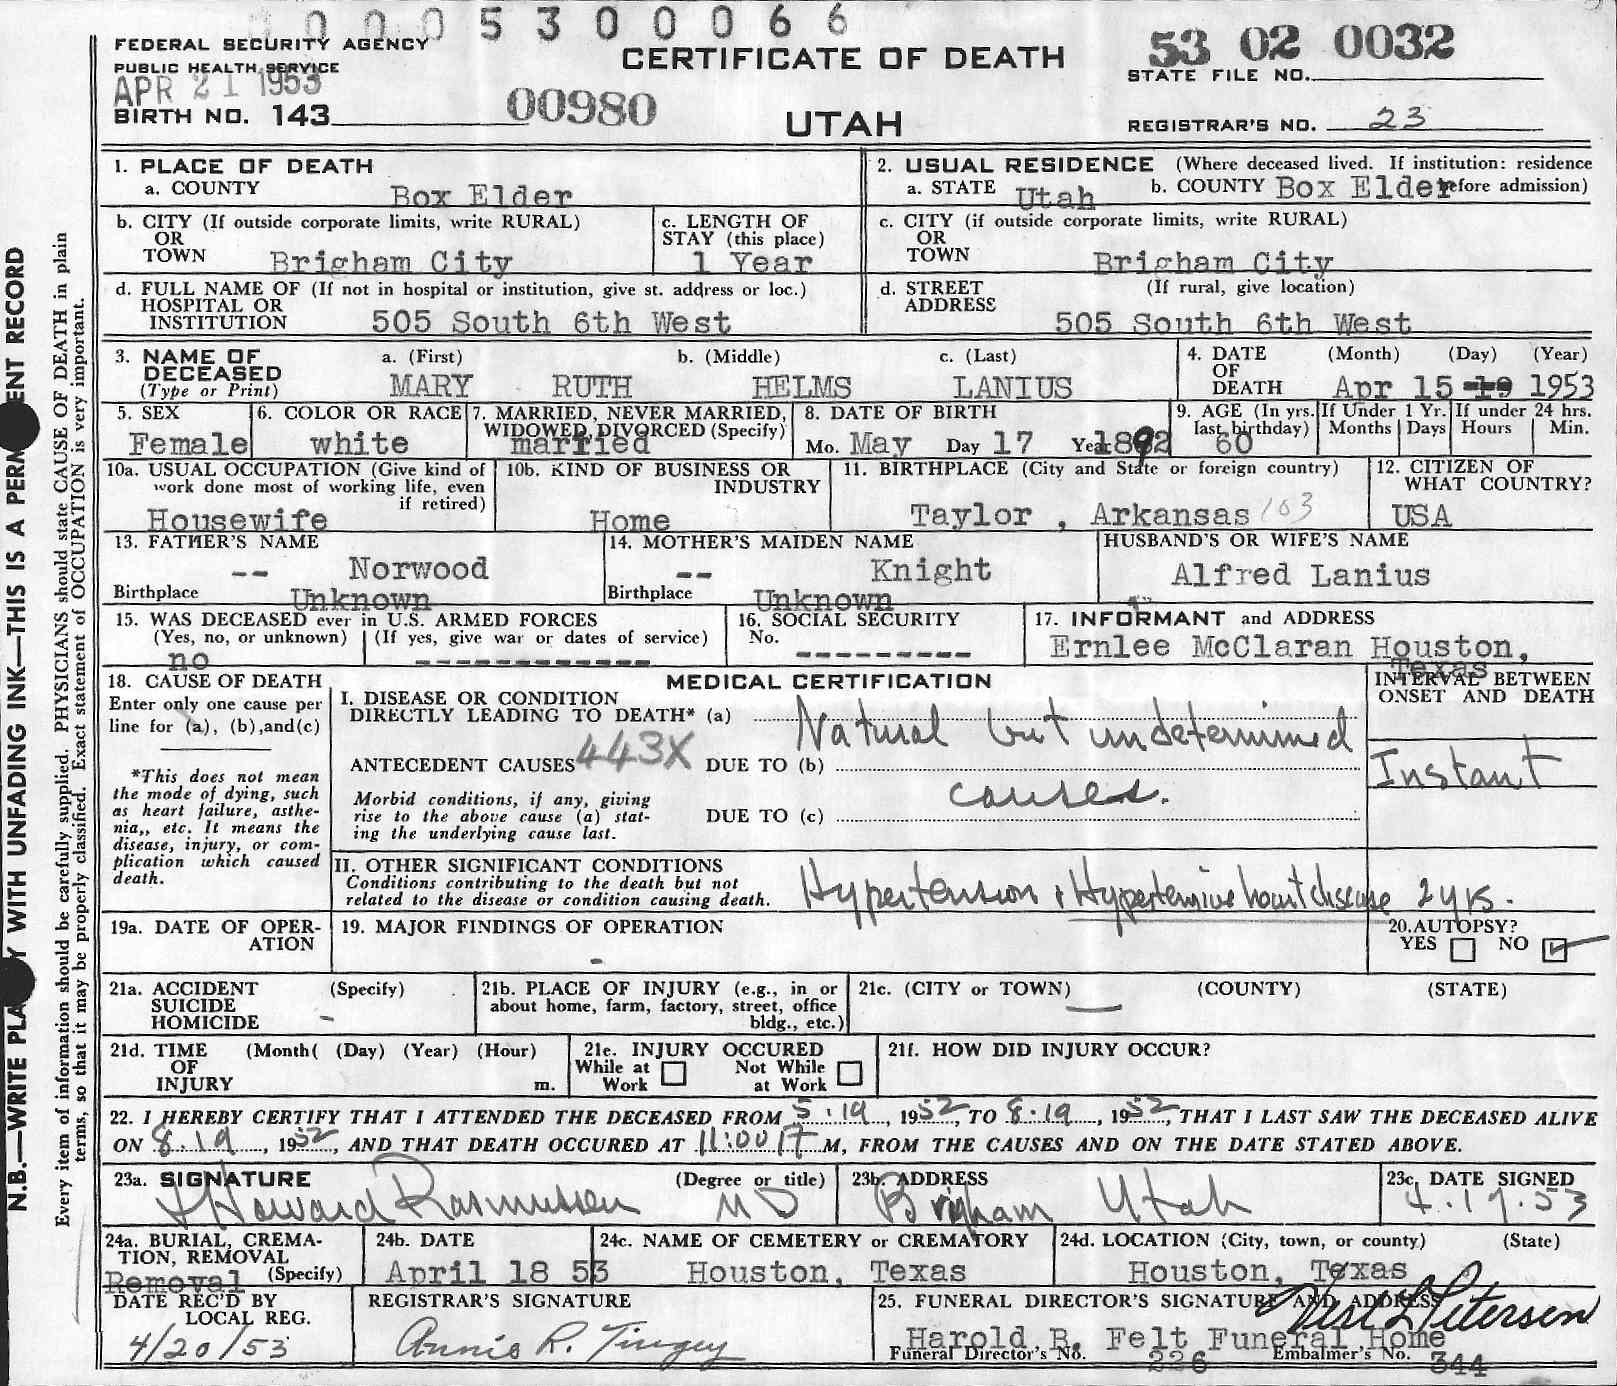 0005300066
FEDERAL SECURITY AGENCY
PUBLIC HEALTH SERVICE
APR 21 1953
BIRTH NO. 143
00980
CERTIFICATE OF DEATH
UTAH
53 02 0032
STATE FILE NO.
REGISTRAR'S NO. 23
N.B.—WRITE PLA Y WITH UNFADING INK—THIS IS A PERM ENT RECORD
Every item of information should be carefully supplied. PHYSICIANS should state CAUSE OF DEATH in plain
terms, so that it may be properly classified. Exact statement of OCCUPATION is very important.
1. PLACE OF DEATH
a. COUNTY Box Elder
2. USUAL RESIDENCE (Where deceased lived. If institution: residence
a. STATE Utah b. COUNTY Box Elder before admission)
b. CITY (If outside corporate limits, write RURAL)
OR
TOWN Brigham City
c. LENGTH OF
STAY (this place)
1 Year
c. CITY (if outside corporate limits, write RURAL)
OR
TOWN Brigham City
d. FULL NAME OF (If not in hospital or institution, give st. address or loc.)
HOSPITAL OR
INSTITUTION 505 South 6th West
d. STREET (If rural, give location)
ADDRESS
505 South 6th West
3. NAME OF a. (First) b. (Middle) c. (Last)
DECEASED
(Type or Print) MARY RUTH HELMS LANIUS
4. DATE (Month) (Day) (Year)
OF
DEATH Apr 15 19 1953
5. SEX
Female
6. COLOR OR RACE
white
7. MARRIED, NEVER MARRIED,
WIDOWED, DIVORCED (Specify)
married
8. DATE OF BIRTH
Mo. May Day 17 Year 1892
9. AGE (In yrs.
last birthday)
60
If Under 1 Yr.
Months Days
If under 24 hrs.
Hours Min.
10a. USUAL OCCUPATION (Give kind of
work done most of working life, even
if retired)
Housewife
10b. KIND OF BUSINESS OR
INDUSTRY
Home
11. BIRTHPLACE (City and State or foreign country)
Taylor , Arkansas 103
12. CITIZEN OF
WHAT COUNTRY?
USA
13. FATHER'S NAME
-- Norwood
Birthplace Unknown
14. MOTHER'S MAIDEN NAME
-- Knight
Birthplace Unknown
HUSBAND'S OR WIFE'S NAME
Alfred Lanius
15. WAS DECEASED ever in U.S. ARMED FORCES
(Yes, no, or unknown) (If yes, give war or dates of service)
no ------------
16. SOCIAL SECURITY
No.
---------
17. INFORMANT and ADDRESS
Ernlee McClaran Houston,
Texas
18. CAUSE OF DEATH
Enter only one cause per
line for (a), (b),and(c)
*This does not mean
the mode of dying, such
as heart failure, asthe-
nia,, etc. It means the
disease, injury, or com-
plication which caused
death.
MEDICAL CERTIFICATION
I. DISEASE OR CONDITION
DIRECTLY LEADING TO DEATH* (a) Natural but undetermined
443X
ANTECEDENT CAUSES DUE TO (b) causes.
Morbid conditions, if any, giving
rise to the above cause (a) stat-
ing the underlying cause last.
DUE TO (c)
INTERVAL BETWEEN
ONSET AND DEATH
Instant
II. OTHER SIGNIFICANT CONDITIONS
Conditions contributing to the death but not
related to the disease or condition causing death.
Hypertension & Hypertensive heart disease 2 yrs.
19a. DATE OF OPER-
ATION
19. MAJOR FINDINGS OF OPERATION
-
20. AUTOPSY?
YES NO ✓
21a. ACCIDENT (Specify)
SUICIDE
HOMICIDE -
21b. PLACE OF INJURY (e.g., in or
about home, farm, factory, street, office
bldg., etc.)
21c. (CITY or TOWN) (COUNTY) (STATE)
—
21d. TIME (Month( (Day) (Year) (Hour)
OF
INJURY m.
21e. INJURY OCCURED
While at Not While
Work at Work
21f. HOW DID INJURY OCCUR?
22. I HEREBY CERTIFY THAT I ATTENDED THE DECEASED FROM 5-19, 1952, TO 8-19, 1952, THAT I LAST SAW THE DECEASED ALIVE
ON 8-19, 1952, AND THAT DEATH OCCURED AT 11:00 P M, FROM THE CAUSES AND ON THE DATE STATED ABOVE.
23a. SIGNATURE (Degree or title)
Howard Rasmussen MD
23b. ADDRESS
Brigham Utah
23c. DATE SIGNED
4.17.53
24a. BURIAL, CREMA-
TION, REMOVAL
(Specify)
Removal
24b. DATE
April 18 53
24c. NAME OF CEMETERY or CREMATORY
Houston, Texas
24d. LOCATION (City, town, or county) (State)
Houston, Texas
DATE REC'D BY
LOCAL REG.
4/20/53
REGISTRAR'S SIGNATURE
Annie R. Tingey
25. FUNERAL DIRECTOR'S SIGNATURE AND ADDRESS
Petersen
Harold B. Felt Funeral Home
Funeral Director's No. 226 Embalmer's No. 344